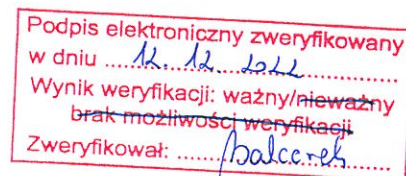 Podpis elektroniczny zweryfikowany
w dniu ...12. 12. 2022...............
Wynik weryfikacji: ważny/nieważny
brak możliwości weryfikacji
Zweryfikował: ......Balcerek